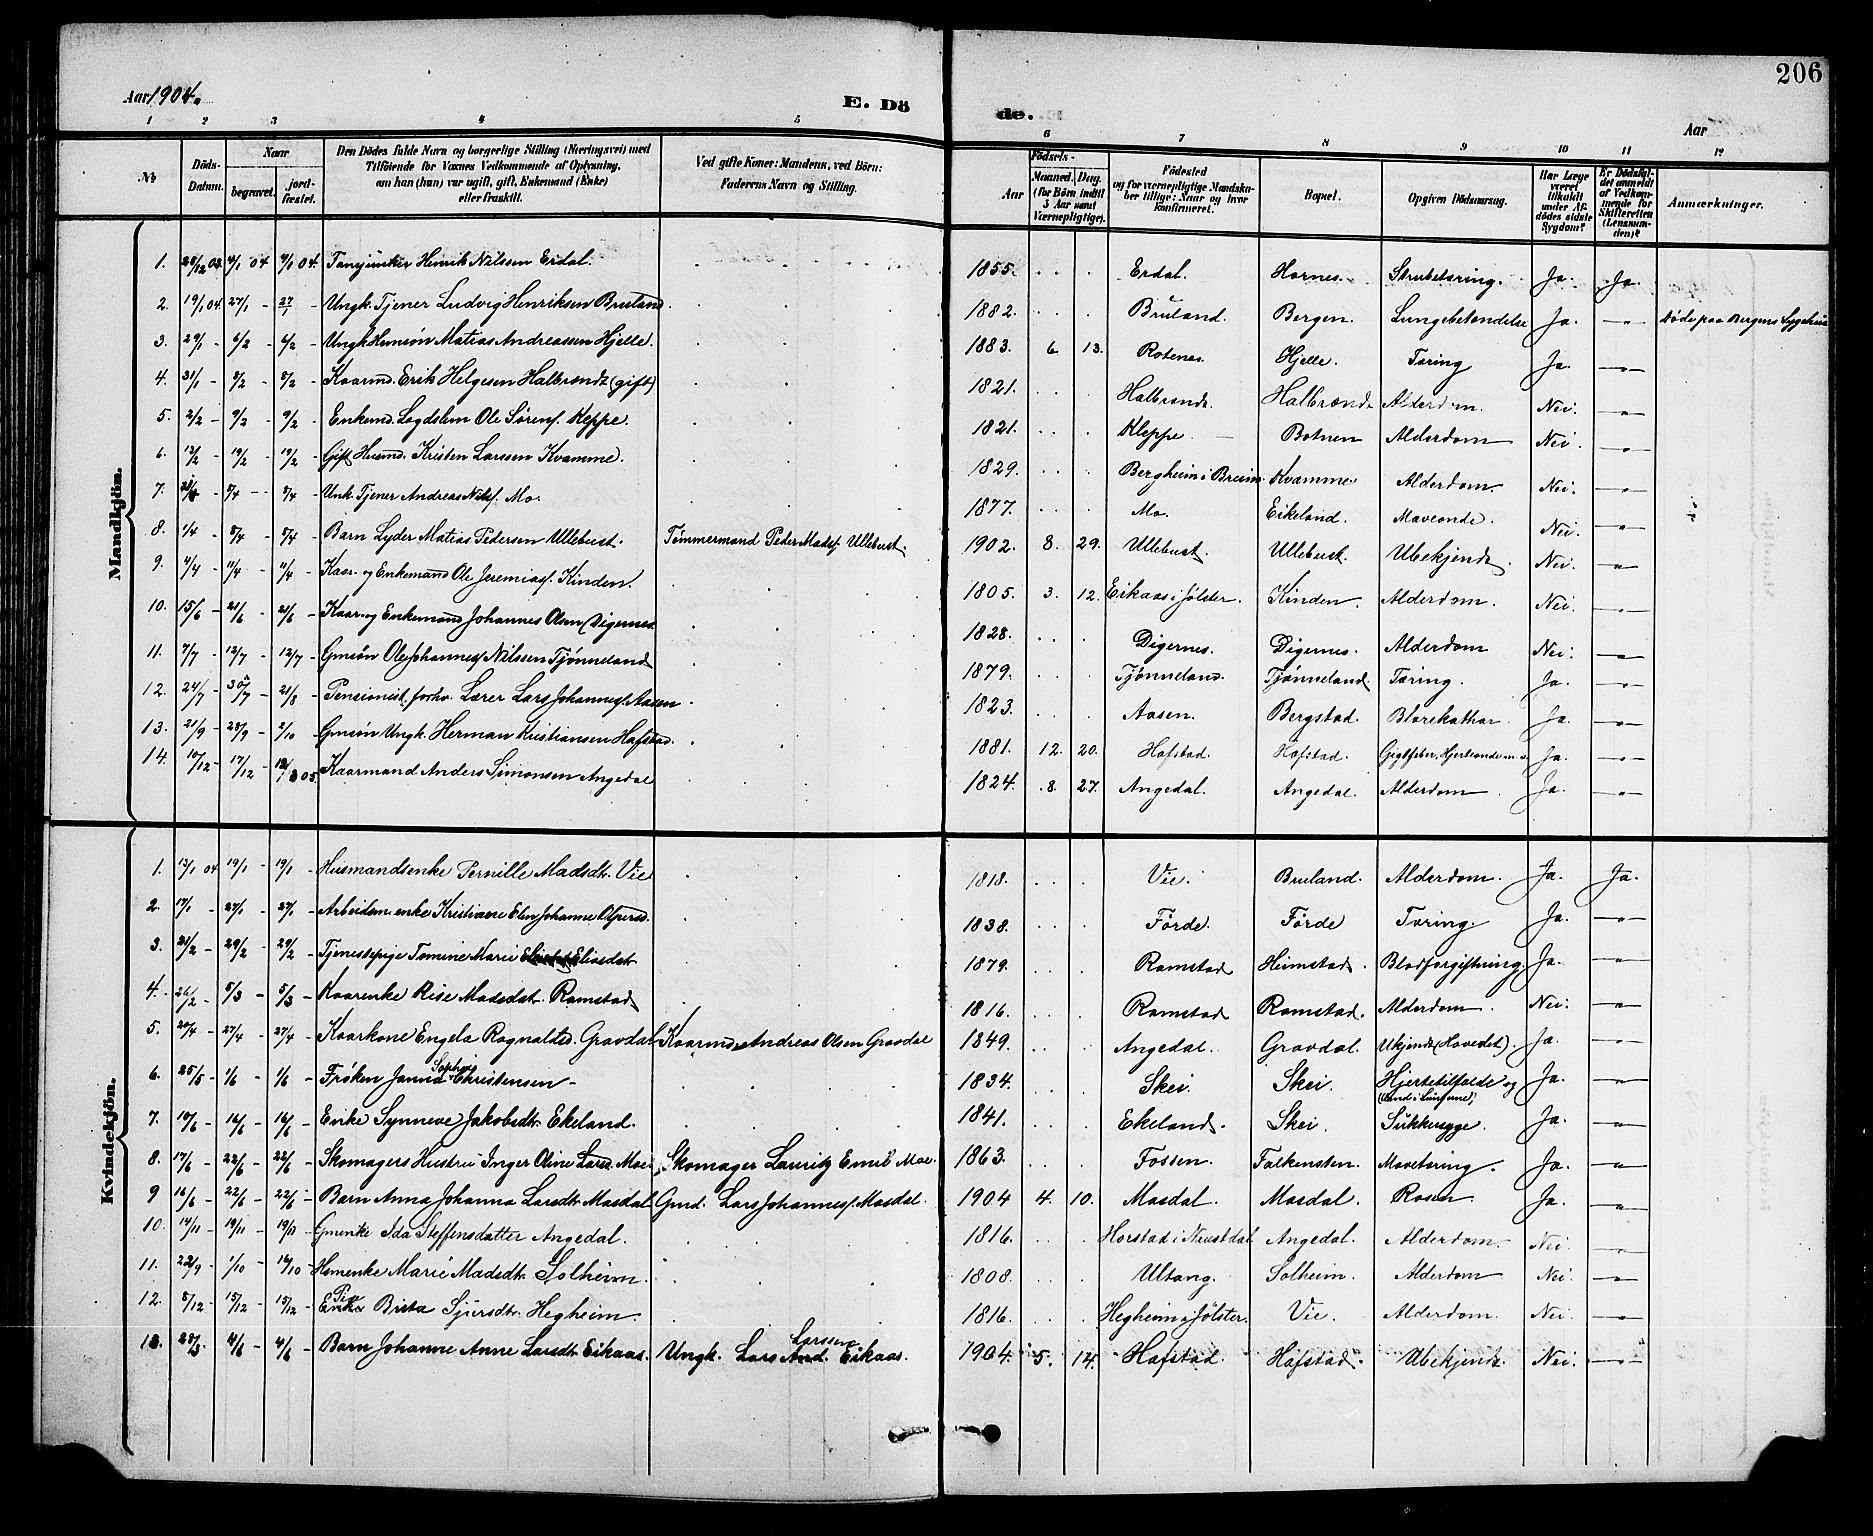 206
Aar 1904.
E. Dö
de.
Aar
1 2 3 4 5 6 7 8 9 10 11 12
№
Döds-Datum.
Naar
begravet.
jordfæstet.
Den Dödes fulde Navn og borgerlige Stilling (Næringsvei) med
Tilföiende for Voxnes Vedkommende af Oplysning,
om han (hun) var ugift, gift, Enkemand (Enke)
eller fraskilt.
Ved gifte Koner: Mandens, ved Börn:
Faderens Navn og Stilling.
Födsels-
Aar
Maaned. Dag.
(for Börn indtil
5 Aar samt
Værnepligtige).
Födested
og for værnepligtige Mandskaber tillige: Naar og hvor
konfirmeret.
Bopæl.
Opgiven Dödsaarsag.
Har Læge
været
tilkaldt
under Afdödes sidste
Sygdom?
Er Dödsfaldet anmeldt
af Vedkommende for
Skifteretten
(Lensmanden)?
Anmærkninger.
Mandkjön.
1. 4/1 04 4/1 04. Henrik Nilssen Erdal. 1855. Erdal. Hornes. Strubetæring. Ja. Ja.
2. 19/1 04 27/1 - 27/1 - Ungk. Tjener Ludvig Henriksen Bruland. 1882. Bruland. Bergen. Lungebetændelse Ja. -"- Døde paa Bergens Sygehus
3. 29/1 - 6/2 - 6/2 - Ungk. Hmsøn Matias Andreassen Hjelle. 1883. 6. 13. Rotenes. Hjelle. Tæring Ja. -"-
4. 31/1 - 8/2 - 8/2 - Kaarmd. Erik Helgesen Halbrendt (gift) 1821. Halbrendt. Halbrendt Alderdom. Nei. -"-
5. 2/2 - 9/2 - 9/2 - Enkemd. Legdslem Ole Sørens. Kleppe. 1821. Kleppe. Botnen Alderdom Nei. -"-
6. 13/2 - 19/2 - 19/2 - Gift Husmd. Kristen Larssen Kvamme. 1829. Bergheim i Breim. Kvamme Alderdom. Nei. -"-
7. 8/4 - 8/4 - Unk. Tjener Andreas Nils. Mo. 1877. Mo. Eikeland. Maveonde. Nei. -"-
8. 1/4 8/4 - 8/4 - Barn Lyder Matias Pedersen Ullebust. Tømmermand Peder Mads. Ullebust. 1902. 8. 29. Ullebust. Ullebust. Ubekjendt. Nei. -"-
9. 4/4 11/4 - 11/4 - Kaar- og Enkemand Ole Jeremias. Kinden. 1805. 3. 12. Eikaas i Jølster. Kinden. Alderdom. Nei. -"-
10. 15/6 - 21/6 - 21/6 - Kaar- og Enkemand Johannes Olsen Digernes. 1828. Digernes. Digernes. Alderdom Nei. -"-
11. 7/7 - 12/7 - 12/7 - Gmsøn Ole Johannes Nilssen Tjønneland 1879. Tjønneland. Tjønneland Tæring. Ja. -"-
12. 24/7 - 30/7 - 21/8 - Pensionist, forhv. Lærer Lars Johannes. Aasen 1823. Aasen. Bergstad. Blærekathar Ja. -"-
13. 21/9 - 28/9 - 2/10 - Gmsøn Ungk. Herman Kristiansen Hafstad. 1881. 12. 20. Hafstad. Hafstad. Gigtfeber, Hjerteonde m. Ja. -"-
14. 10/12 - 17/12 - 05. Kaarmand Anders Simonsen Angedal 1824. 8. 27. Angedal. Angedal. Alderdom Ja. -"-
Kvindekjön.
1. 13/1 04 19/1 - 19/1 - Husmandsenke Pernille Madsdtr. Vie 1818. Vie. Bruland. Alderdom. Ja. Ja.
2. 17/1 - 27/1 - 27/1 - Arbeidsm. enke Kristiane Elen Johanne 1838. Førde. Førde Tæring. Ja. -"-
3. 21/2 - 29/2 - 29/2 - Tjenestepige Tomine Marie Eliasdtr 1879. Ramstad Heimstad. Blodforgiftning Ja. -"-
4. 26/2 - 5/3 - 5/3 - Kaarenke Rise Madsdtr. Ramstad 1816. Ramstad Ramstad. Alderdom. Nei. -"-
5. 20/4 - 27/4 - 27/4 - Kaarkone Engela Ragnaldsd. Gravdal Kaarmd. Andreas Olsen Gravdal 1849. Angedal. Gravdal. Ukjendt (Hovedet). Ja. -"-
6. 25/5 - 1/6 - 1/6 - Frøken Janna Sophie Christensen - 1834. Skei. Skei. Hjertetilfælde og
(Vand i Lungerne) Ja. -"-
7. 10/6 - 16/6 - 16/6 - Enke Synneve Jakobsdtr Ekeland. 1841. Ekeland. Skei. Sukkersyge. Ja. -"-
8. 17/6 - 22/6 - 22/6 - Skomagers Hustru Inger Oline Larsd. Moe Skomager Lauritz Emil Moe. 1863. Fossen. Falkensten. Mavetæring. Ja. -"-
9 16/6 - 22/6 - 22/6 - Barn Anna Johanna Larsdtr Masdal Gmd. Lars Johannes. Masdal. 1904 4. 10. Masdal. Masdal. Rosen. Ja. -"-
10. 14/11 - 19/11 - 19/11 - Gmenke Ida Steffensdatter Angedal. 1816. Horstad i Neustdal Angedal. Alderdom. Nei. -"-
11. 22/9 - 1/10 - 14/10 - Hmenke Marie Madsdtr. Solheim. 1808. Ultang. Solheim. Alderdom Nei. -"-
12. 8/12 - 15/12 - 15/12 - Pige Brita Sjursdtr. Hegheim. 1816. Hegheim i Jølster. Vie. Alderdom Nei. -"-
13. 4/6 - 4/6 - Barn Johanne Anne Larsdtr Eikaas. Ungk. Lars And. Larssen Eikaas. 1904. 5. 14. Hafstad Hafstad. Ubekjendt. Nei. -"-